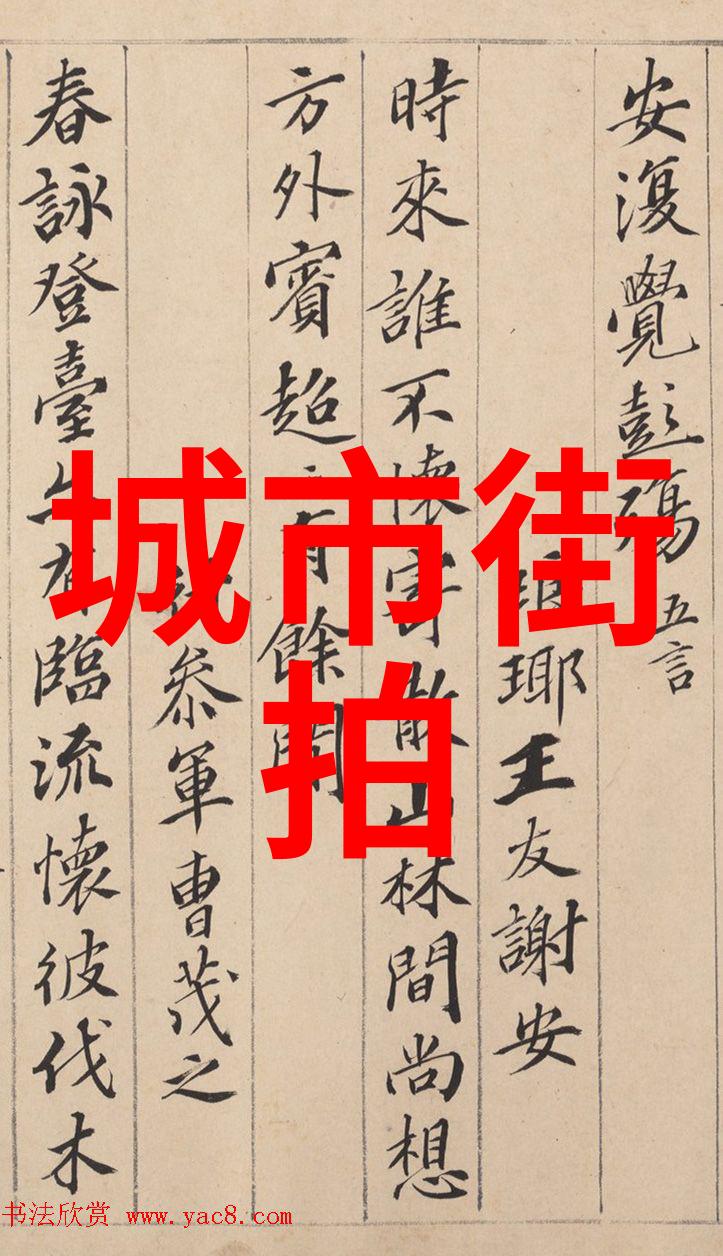 安復覺彭殤 五言
琅瑘王友謝安
時來誰不懷寄散山林間尚想
方外賓超有餘閒
參軍曹茂之
春詠登臺亦有臨流懷彼伐木
城市街
拍
书法欣赏 www.yac8.com